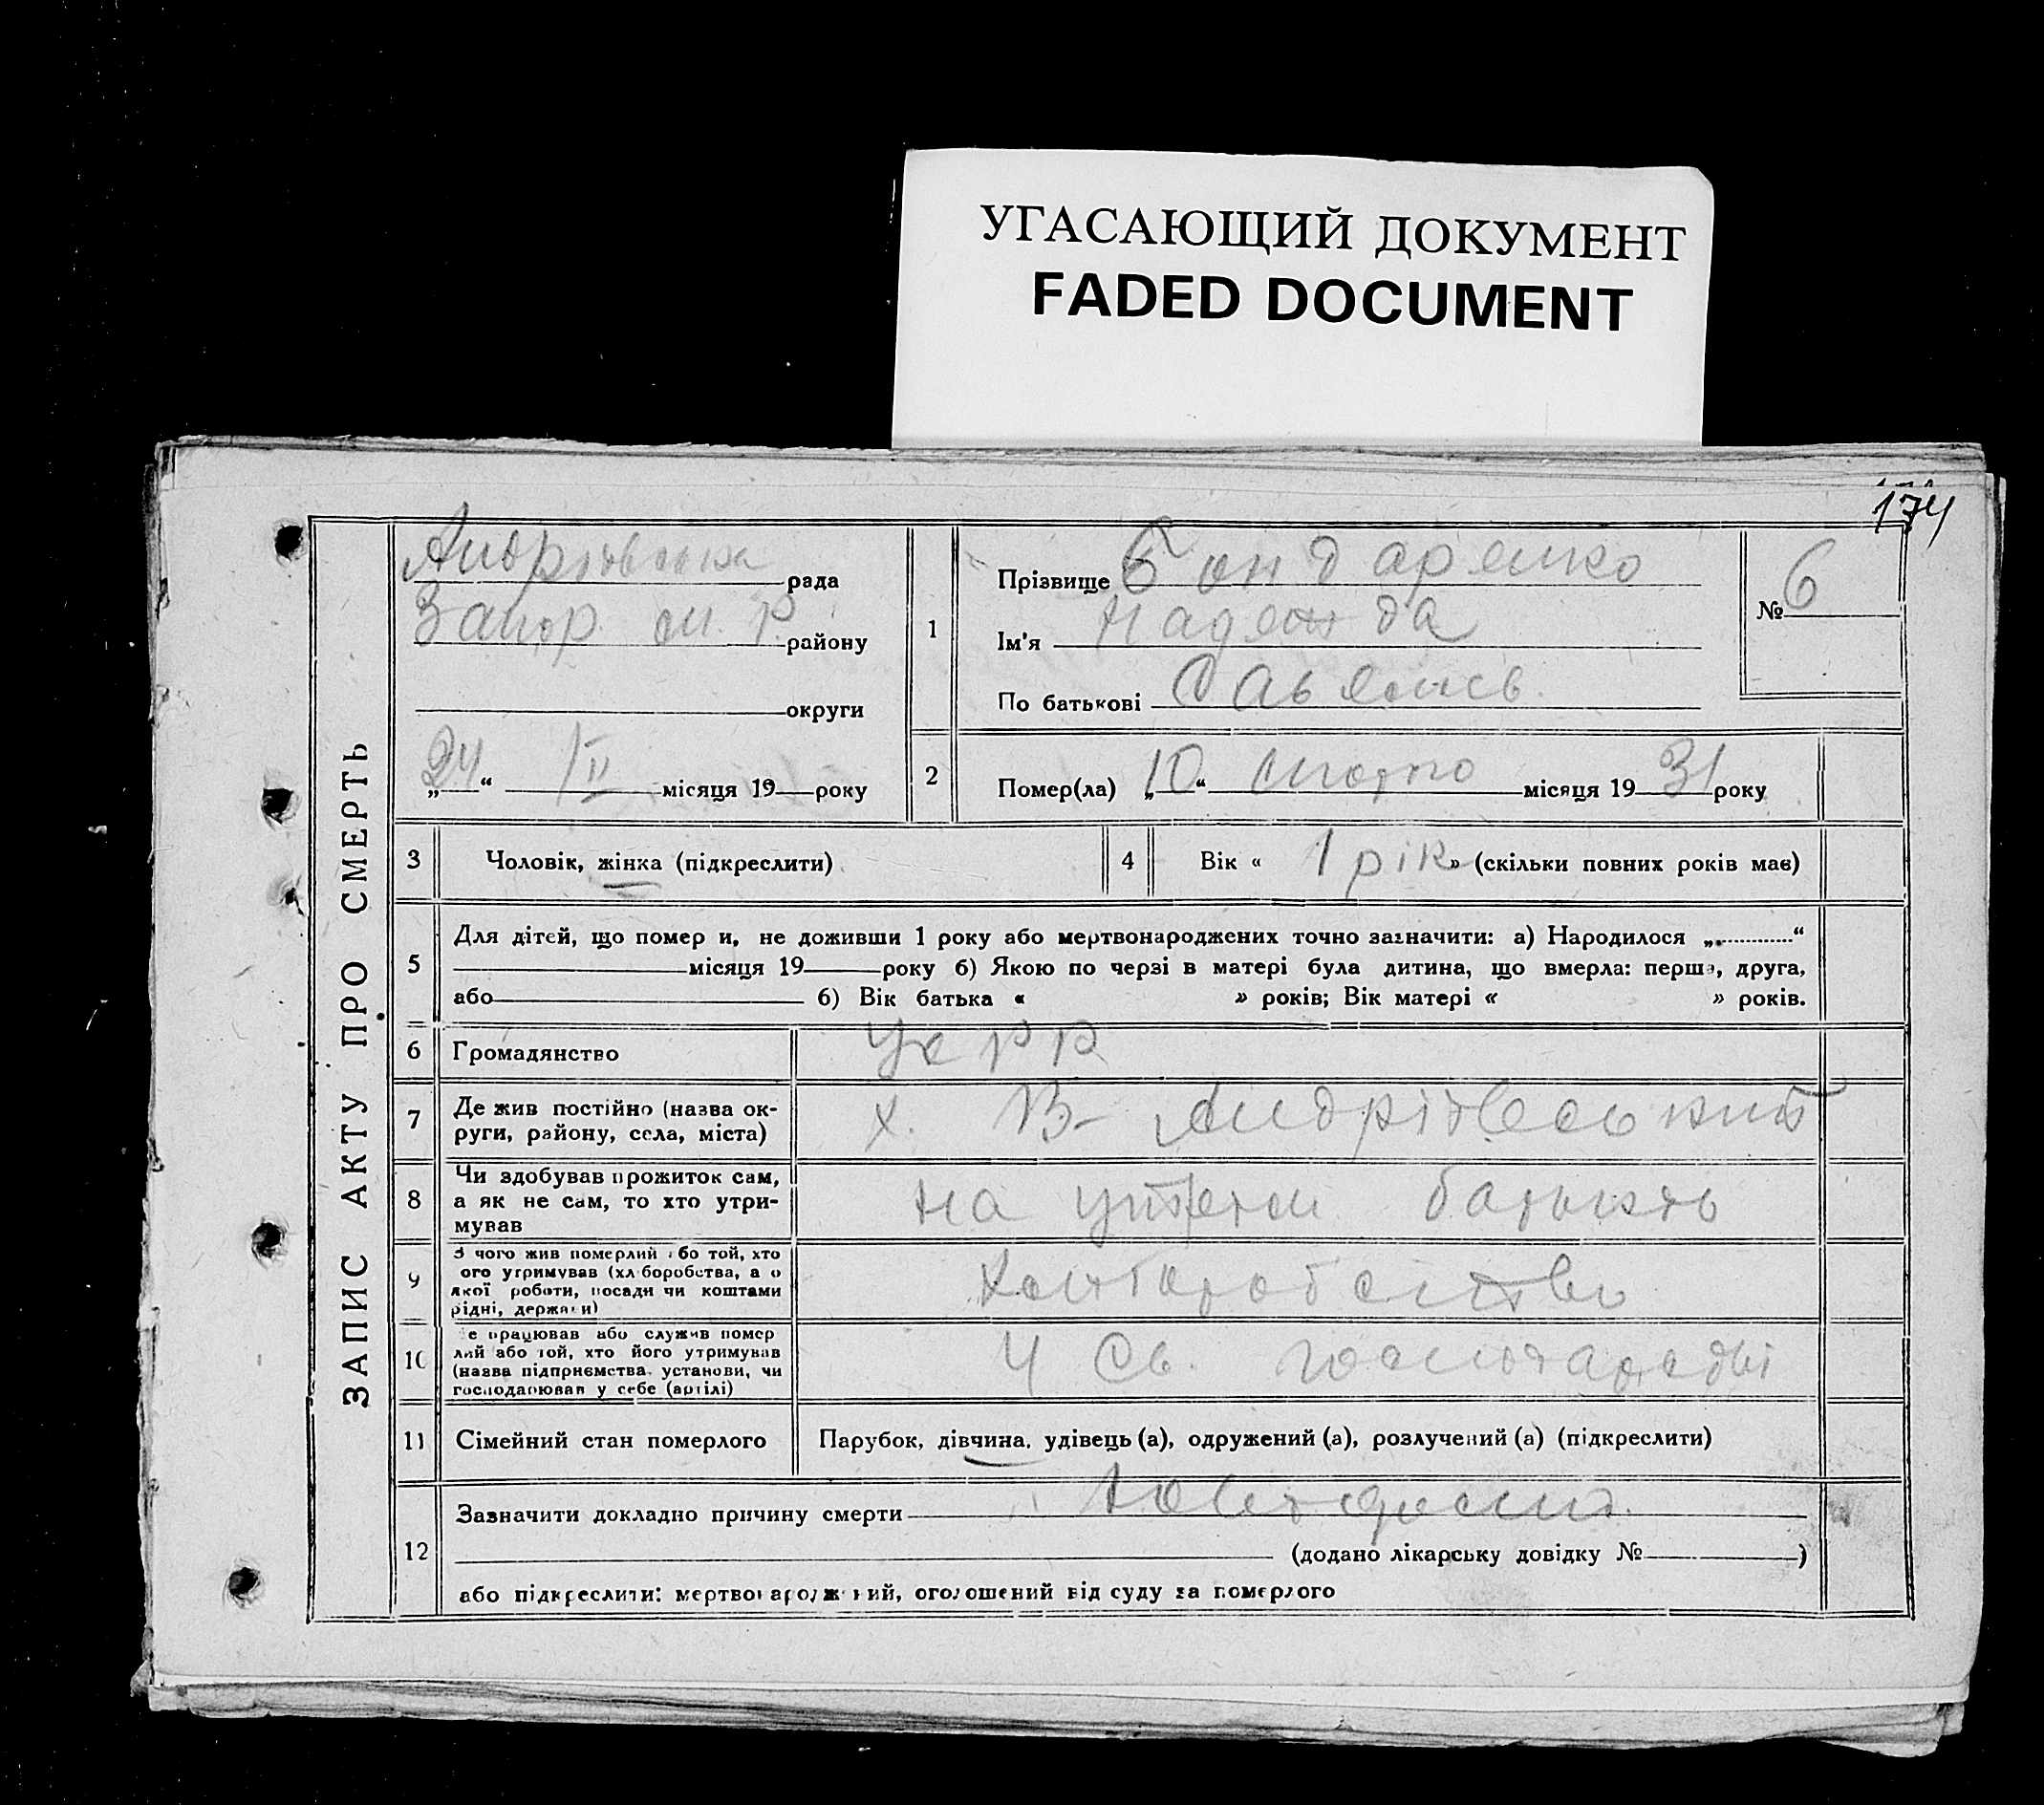 УГАСАЮЩИЙ ДОКУМЕНТ
FADED DOCUMENT
174
ЗАПИС АКТУ ПРО СМЕРТЬ
Андріївська рада
Запор. м. Р. району
округи
„24“ II місяця 19 року
1
Прізвище Бондаренко
Ім'я Надежда
По батькові
№ 6
2
Помер(ла) „10“ лютого місяця 1931 року
3 Чоловік, жінка (підкреслити)
4 Вік « 1 рік » (скільки повних років має)
5
Для дітей, що помер и, не доживши 1 року або мертвонароджених точно зазначити: а) Народилося „............“
місяця 19 року б) Якою по черзі в матері була дитина, що вмерла: перша, друга,
або 6) Вік батька « » років; Вік матері « » років.
6 Громадянство УСРР
7 Де жив постійно (назва ок-
руги, району, села, міста)
х. В- Андріївський
8 Чи здобував прожиток сам,
а як не сам, то хто утри-
мував
на батьків
9 З чого жив померлий або той, хто
ого утримував (хліборобства, а о
якої роботи, посади чи коштами
рідні, держави)
10 е працював або служив помер
лий або той, хто його утримував
(назва підприємства, установи, чи
господарював у себе (артілі)
У св. господарстві
11 Сімейний стан померлого
Парубок, дівчина, удівець (а), одружений (а), розлучений (а) (підкреслити)
12
Зазначити докладно причину смерти
(додано лікарську довідку № )
або підкреслити: мертвонароджений, оголошений від суду за померлого